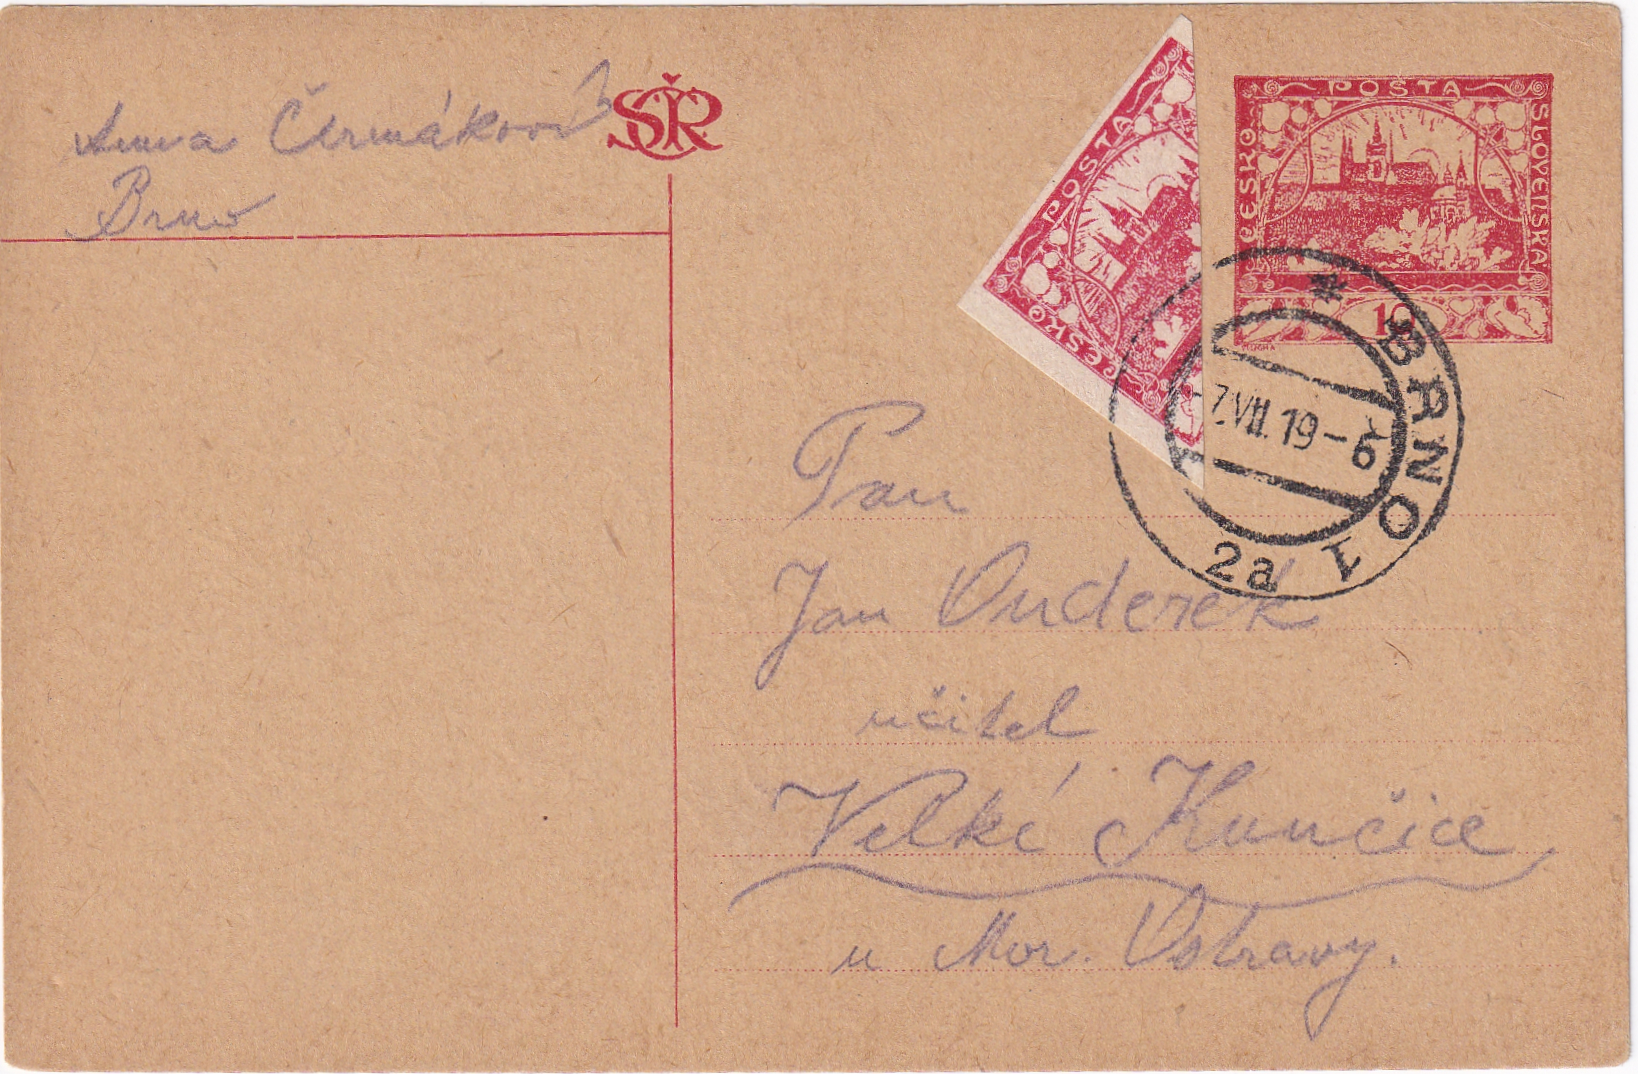 Anna Čermáková
Brno
ČSR
POŠTA
ČESKO
POŠTA
ČESKO
SLOVENSKÁ
10
BRNO 1
7.VII.19-6
2a
Pan
Jan Onderek
učitel
Velké Kunčice
u Mor. Ostravy.